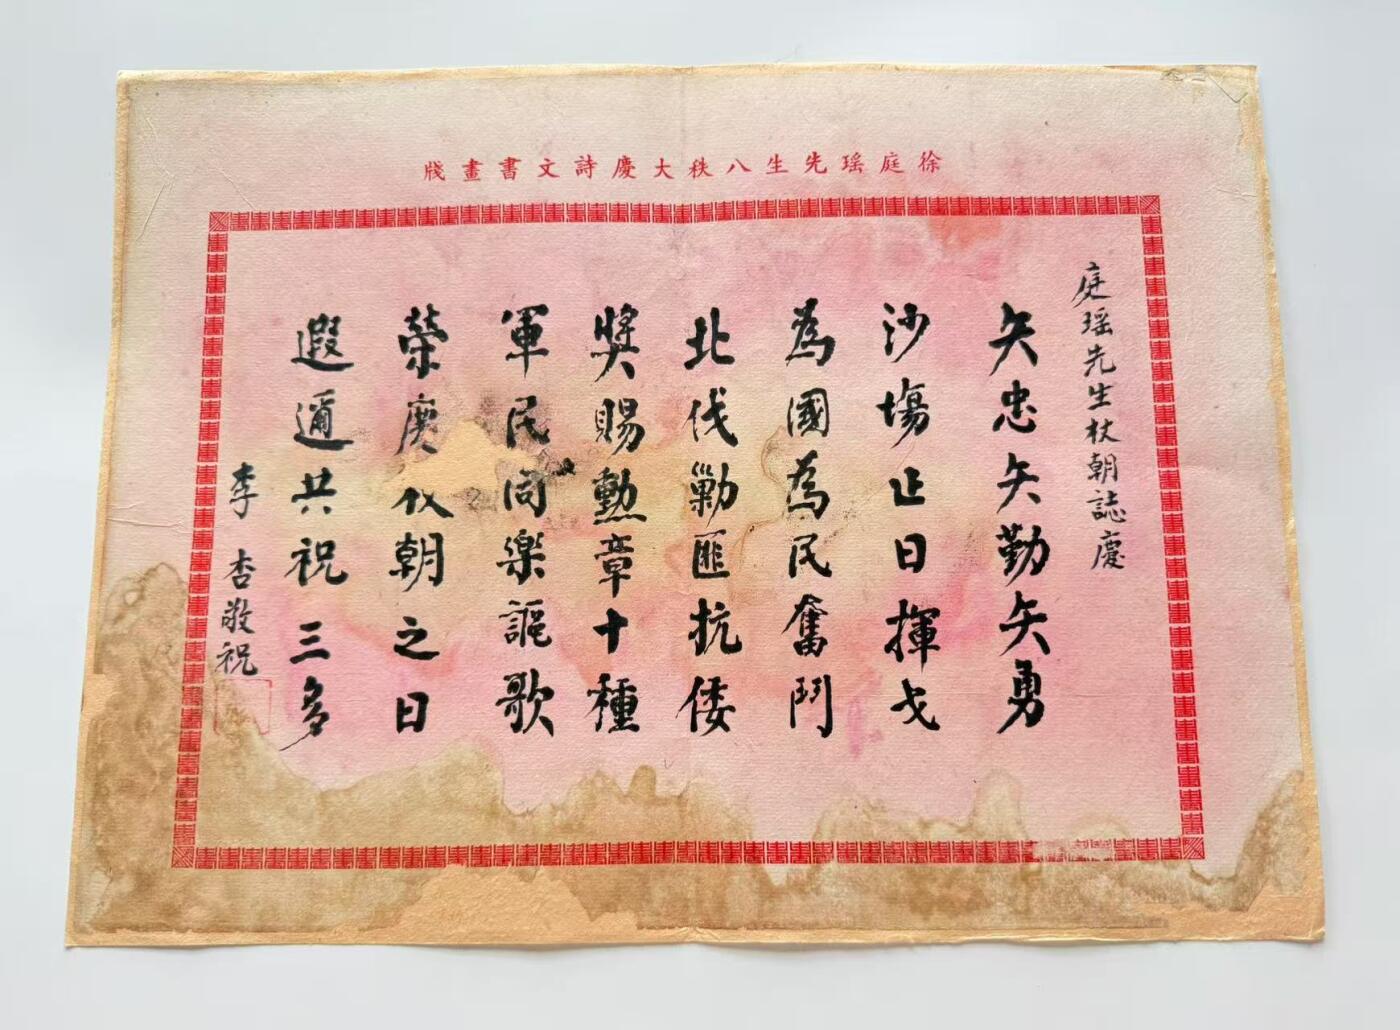 徐庭瑤先生八秩大慶詩文書畫牋
庭瑤先生杖朝誌慶
矢忠矢勤矢勇
沙塲止日揮戈
為國為民奮鬥
北伐勦匪抗倭
獎賜勳章十種
軍民同樂謳歌
榮朝之日
遐邇共祝三多
李杏敬祝